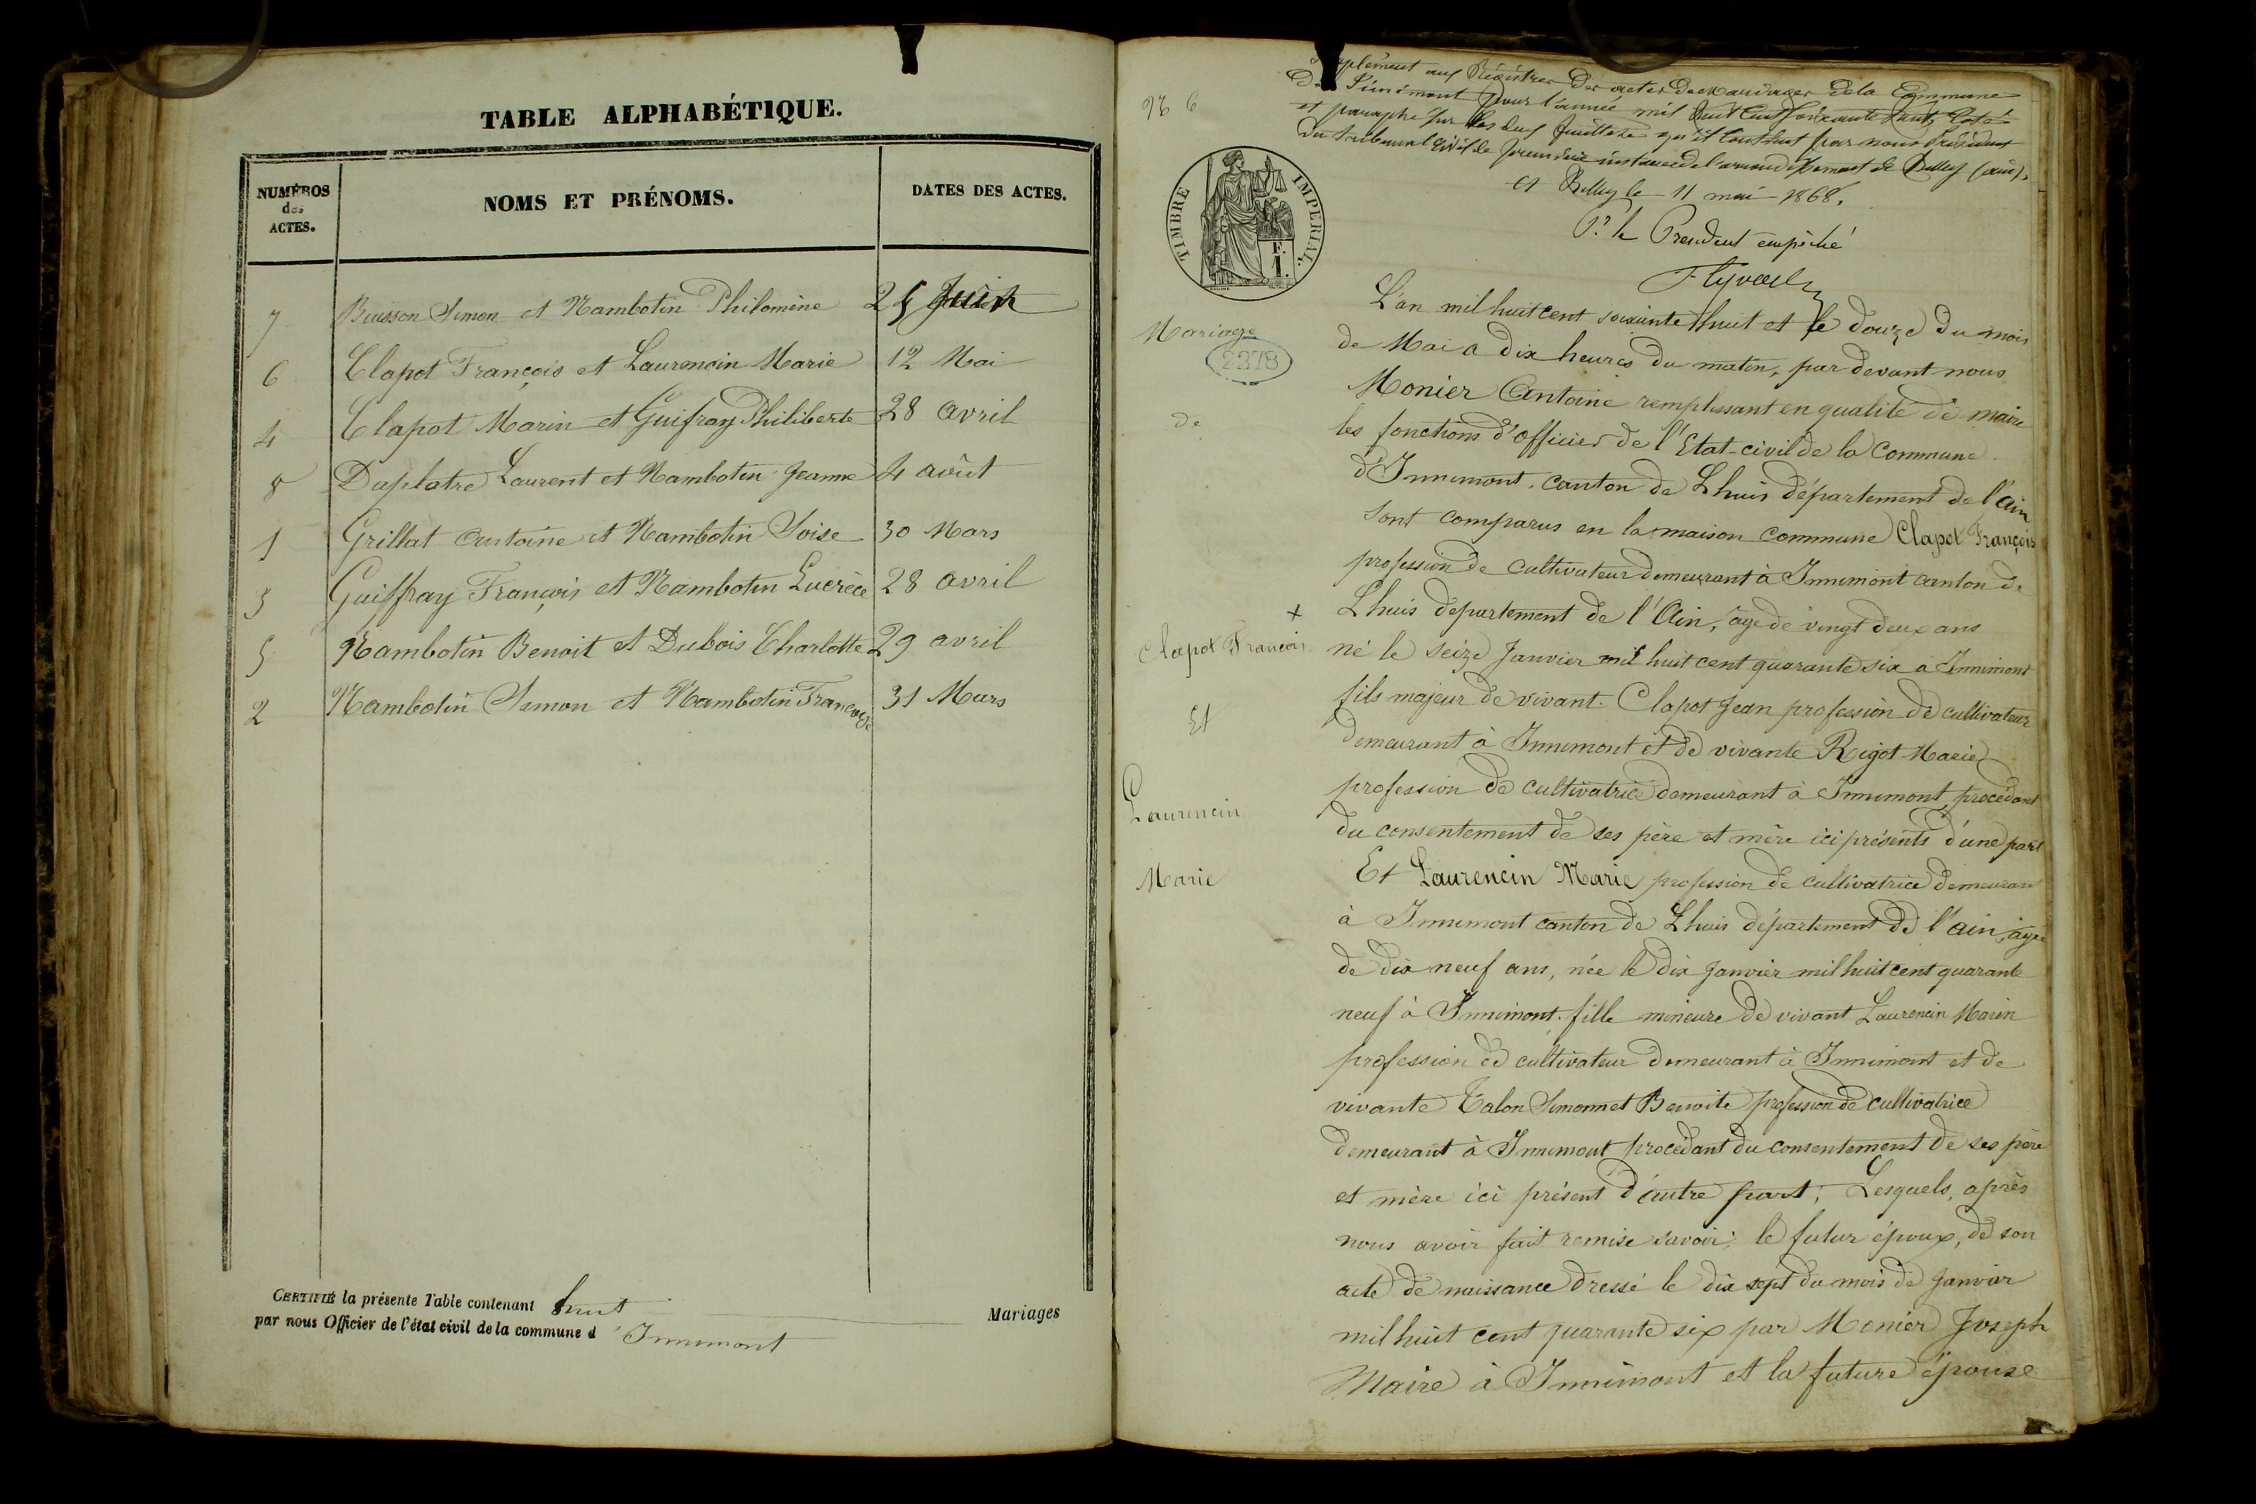 TABLE ALPHABÉTIQUE.
NUMÉROS
des
ACTES.
NOMS ET PRÉNOMS.
DATES DES ACTES.
7 Buisson Simon et Nambotin Philomène 25 Juin
6 Clapot François et Laurencin Marie 12 Mai
4 Clapot Marin et Guifray Philiberte 28 avril
8 Duplatre Laurent et Nambotin Jeanne 4 août
1 Grillat Antoine et Nambotin Soise 30 Mars
3 Guiffray François et Nambotin Lucrèce 28 avril
5 Nambotin Benoit et Dubois Charlotte 29 avril
2 Nambotin Simon et Nambotin Françoise 31 Mars
CERTIFIÉ la présente Table contenant huit Mariages
par nous Officier de l'état civil de la commune d'Innimont
Supplément aux Régistres des actes de mariages de la Commune
d'Innimont pour l'année mil huit cent soixante huit, Coté
et paraphé sur les deux feuillets qu'il contient par nous Président
du tribunal civil de première instance de l'arrondissement de Belley (ain).
Belley le 11 mai 1868.
Pr le President empêché
TIMBRE IMPERIAL.
F.
1.
No 6
Mariage
2378
de
Clapot François
Et
Laurencin
Marie
L'an mil huit cent soixante huit et le douze du mois
de Mai a dix heures du matin, par devant nous
Monier Antoine remplissant en qualité de maire
les fonctions d'officier de l'Etat-civil de la Commune
d'Innimont, canton de Lhuis département de l'ain
sont comparus en la maison commune Clapot François
profession de cultivateur demeurant à Innimont canton de
Lhuis departement de l'Ain, âgé de vingt deux ans
né le seize Janvier mil huit cent quarante six à Innimont
fils majeur de vivant Clapot Jean profession de cultivateur
demeurant à Innimont et de vivante Rigot Marie
profession de cultivatrice demeurant à Innimont, procédant
du consentement de ses père et mère ici présents d'une part
Et Laurencin Marie profession de cultivatrice demeurant
à Innimont canton de Lhuis département de l'ain, âgée
de dix neuf ans, née le dix Janvier mil huit cent quarante
neuf à Innimont fille mineure de vivant Laurencin Marin
profession de cultivateur demeurant à Innimont et de
vivante Talon Simonnet Benoite profession de cultivatrice
demeurant à Innimont procédant du consentement de ses père
et mère ici présent d'autre part; Lesquels, après
nous avoir fait remise savoir: le futur époux, de son
acte de naissance dressé le dix sept du mois de Janvier
mil huit cent quarante six par Monier Joseph
Maire à Innimont et la future épouse